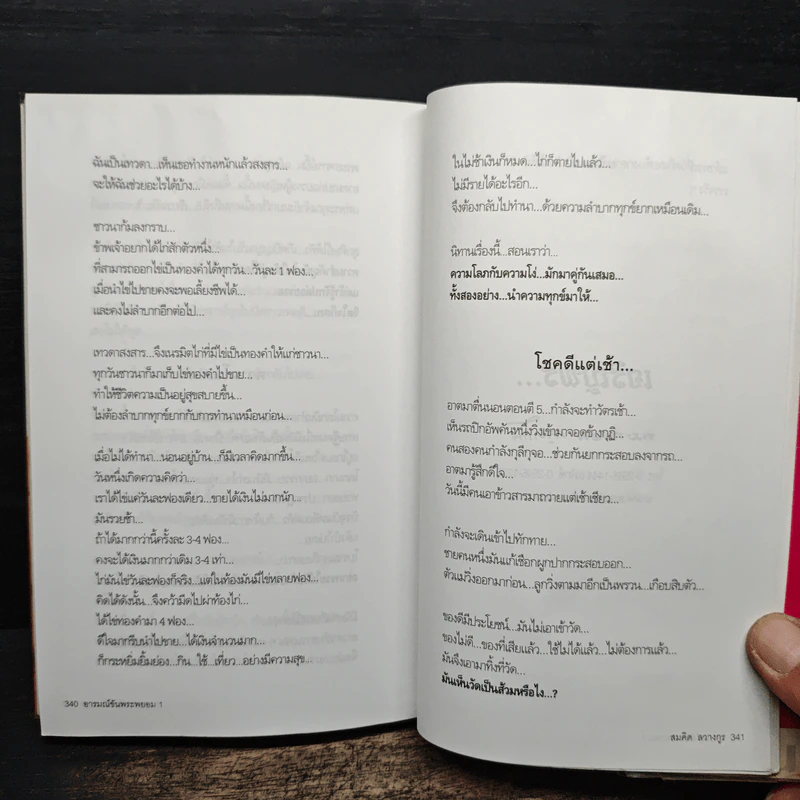 ฉันเป็นเทวดา...เห็นเธอทำงานหนักแล้วสงสาร...
จะให้ฉันช่วยอะไรได้บ้าง...
ชาวนาก้มลงกราบ...
ข้าพเจ้าอยากได้ไก่สักตัวหนึ่ง...
ที่สามารถออกไข่เป็นทองคำได้ทุกวัน...วันละ 1 ฟอง...
เมื่อนำไข่ไปขายคงจะพอเลี้ยงชีพได้...
และคงไม่ลำบากอีกต่อไป...
เทวดาสงสาร...จึงเนรมิตไก่ที่มีไข่เป็นทองคำให้แก่ชาวนา...
ทุกวันชาวนาก็มาเก็บไข่ทองคำไปขาย...
ทำให้ชีวิตความเป็นอยู่สุขสบายขึ้น...
ไม่ต้องลำบากทุกข์ยากกับการทำนาเหมือนก่อน...
เมื่อไม่ได้ทำนา...นอนอยู่บ้าน...ก็มีเวลาคิดมากขึ้น...
วันหนึ่งเกิดความคิดว่า...
เราได้ไข่แค่วันละฟองเดียว...ขายได้เงินไม่มากนัก...
มันรวยช้า...
ถ้าได้มากกว่านี้ครั้งละ 3-4 ฟอง...
คงจะได้เงินมากกว่าเดิม 3-4 เท่า...
ไก่มันไข่วันละฟองก็จริง...แต่ในท้องมันมีไข่หลายฟอง...
คิดได้ดังนั้น...จึงคว้ามีดไปผ่าท้องไก่...
ได้ไข่ทองคำมา 4 ฟอง...
ดีใจมากรีบนำไปขาย...ได้เงินจำนวนมาก...
ก็กระหยิ่มยิ้มย่อง...กิน...ใช้...เที่ยว...อย่างมีความสุข...
340 อารมณ์ขันพระพยอม 1
ในไม่ช้าเงินก็หมด...ไก่ก็ตายไปแล้ว...
ไม่มีรายได้อะไรอีก...
จึงต้องกลับไปทำนา...ด้วยความลำบากทุกข์ยากเหมือนเดิม...
นิทานเรื่องนี้...สอนเราว่า...
ความโลภกับความโง่...มักมาคู่กันเสมอ...
ทั้งสองอย่าง...นำความทุกข์มาให้...
โชคดีแต่เช้า...
อาตมาตื่นนอนตอนตี 5...กำลังจะทำวัตรเช้า...
เห็นรถปิกอัพคันหนึ่งวิ่งเข้ามาจอดข้างกุฏิ...
คนสองคนกำลังกุลีกุจอ...ช่วยกันยกกระสอบลงจากรถ...
อาตมารู้สึกดีใจ...
วันนี้มีคนเอาข้าวสารมาถวายแต่เช้าเชียว...
กำลังจะเดินเข้าไปทักทาย...
ชายคนหนึ่งมันแก้เชือกผูกปากกระสอบออก...
ตัวแม่วิ่งออกมาก่อน...ลูกวิ่งตามมาอีกเป็นพรวน...เกือบสิบตัว...
ของดีมีประโยชน์...มันไม่เอาเข้าวัด...
ของไม่ดี...ของที่เสียแล้ว...ใช้ไม่ได้แล้ว...ไม่ต้องการแล้ว...
มันจึงเอามาทิ้งที่วัด...
มันเห็นวัดเป็นส้วมหรือไง...?
สมคิด ลวางกูร 341